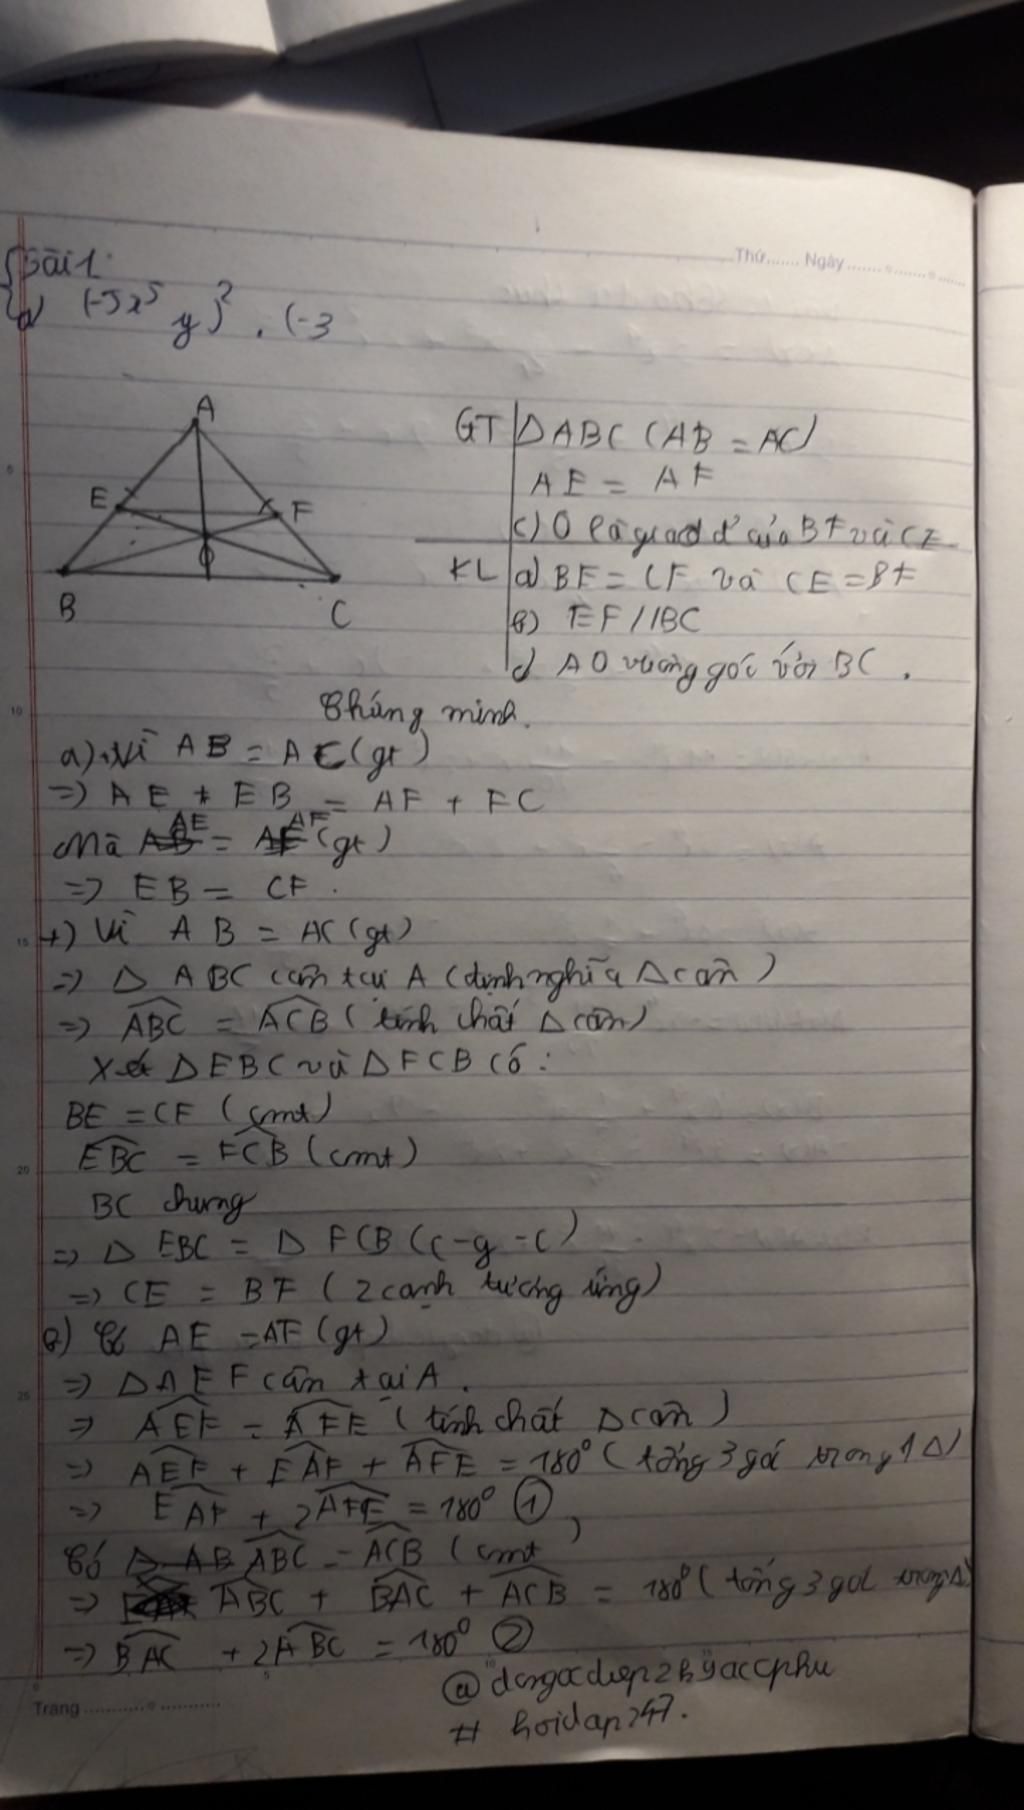 Thứ....... Ngày.......
Bài 1:
a) (-5x⁵ y)² . (-3
A
E
F
O
B
C
GT ΔABC (AB = AC)
AE = AF
c) O là giao đ' của BF và CE
KL a) BE = CF và CE = BF
b) EF // BC
c) AO vuông góc với BC.
Chứng minh.
a) +) Vì AB = AC (gt)
=> AE + EB = AF + FC
Mà AE = AF (gt)
=> EB = CF.
+) Vì AB = AC (gt)
=> Δ ABC cân tại A (định nghĩa Δ cân)
=> \widehat{ABC} = \widehat{ACB} (tính chất Δ cân)
Xét ΔEBC và ΔFCB có:
BE = CF (cmt)
\widehat{EBC} = \widehat{FCB} (cmt)
BC chung
=> Δ EBC = Δ FCB (c-g-c)
=> CE = BF (2 cạnh tương ứng)
b) Có AE = AF (gt)
=> ΔAEF cân tại A.
=> \widehat{AEF} = \widehat{AFE} (tính chất Δ cân)
=> \widehat{AEF} + \widehat{EAF} + \widehat{AFE} = 180⁰ (tổng 3 góc trong 1 Δ)
=> \widehat{EAF} + 2\widehat{AFE} = 180⁰ ①
Có \widehat{ABC} = \widehat{ACB} (cmt)
=> \widehat{ABC} + \widehat{BAC} + \widehat{ACB} = 180⁰ (tổng 3 góc trong Δ)
=> \widehat{BAC} + 2\widehat{ABC} = 180⁰ ②
# hoidap247.
Trang
5
10
15
20
25